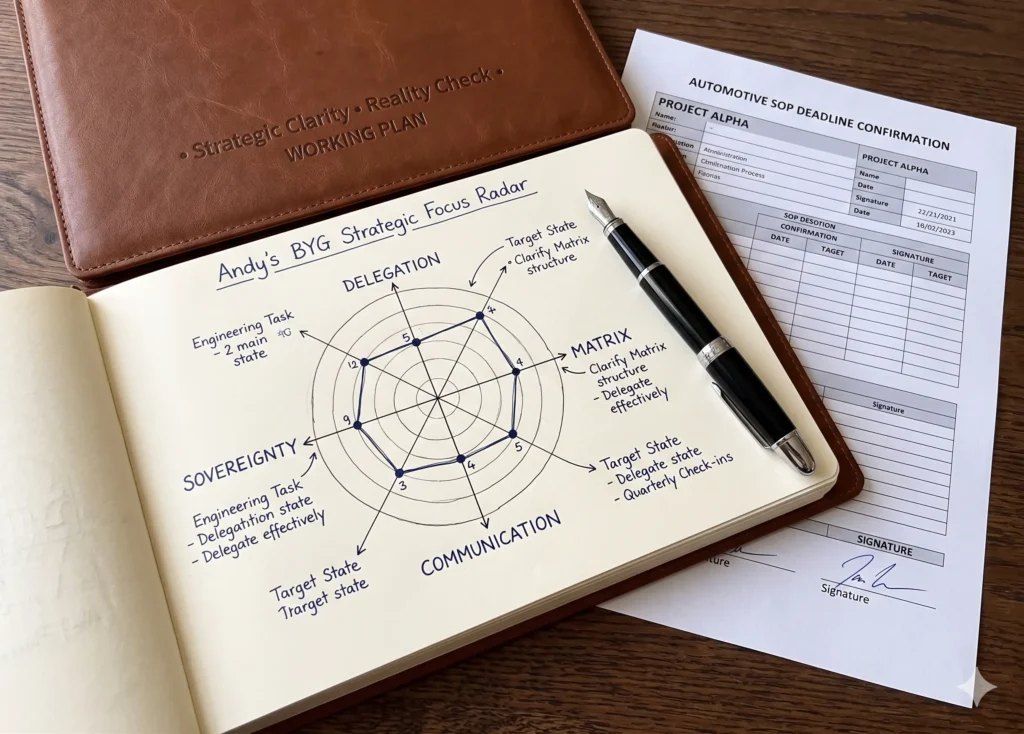 • Strategic Clarity • Reality Check •
WORKING PLAN
Andy's BYG Strategic Focus Radar
DELEGATION
Target State
• Clarify, Matrix
structure
Engineering Task
- 2 main
state
MATRIX
Clarify Matrix
structure
- Delegate
effectively
5
4
5
4
3
9
12
SOVEREIGNTY
Engineering Task
- Delegatition state
- Delegate effectively
Target State
- Delegate state
- Quarterly Check-ins
COMMUNICATION
Target State
Trarget state
AUTOMOTIVE SOP DEADLINE CONFIRMATION
PROJECT ALPHA
Name:
PROJECT ALPHA
Name
Date
Signature
22/21/2021
Date
16/02/2023
SOP DESOTION
CONFIRMATION
SIGNATURE
DATE
TAGET
DATE
TAGET
Signature
SIGNATURE
Signature